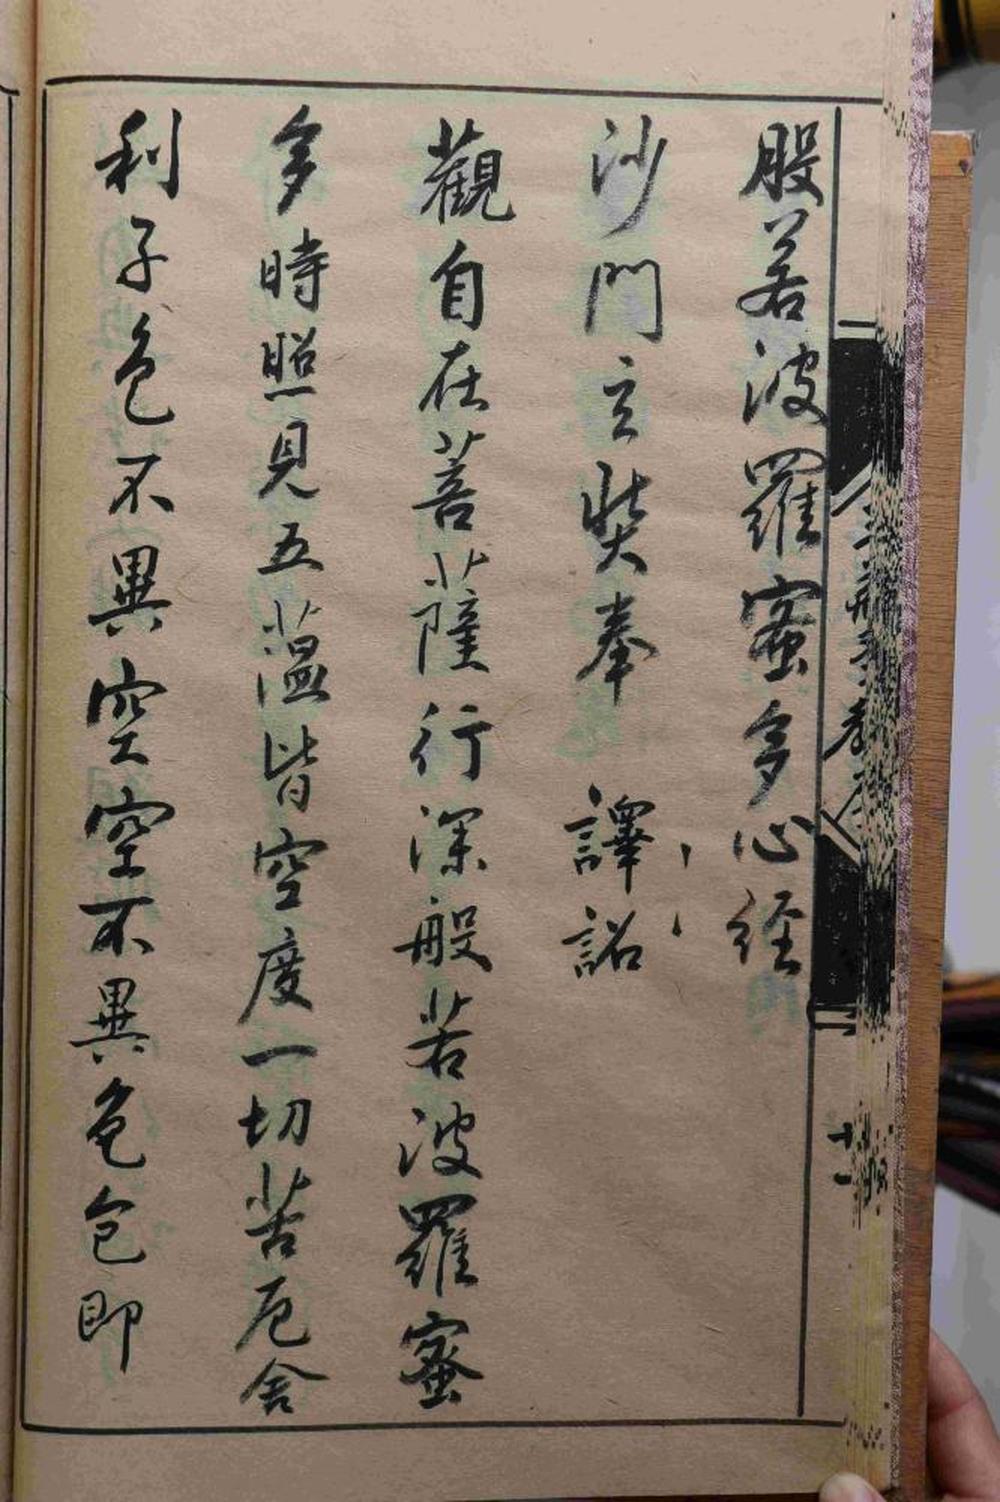 般若波羅蜜多心経
沙門玄奘奉 譯詔
觀自在菩薩行深般若波羅蜜
多時照見五蘊皆空度一切苦厄舍
利子色不異空空不異色色即
三藏聖教序
十一